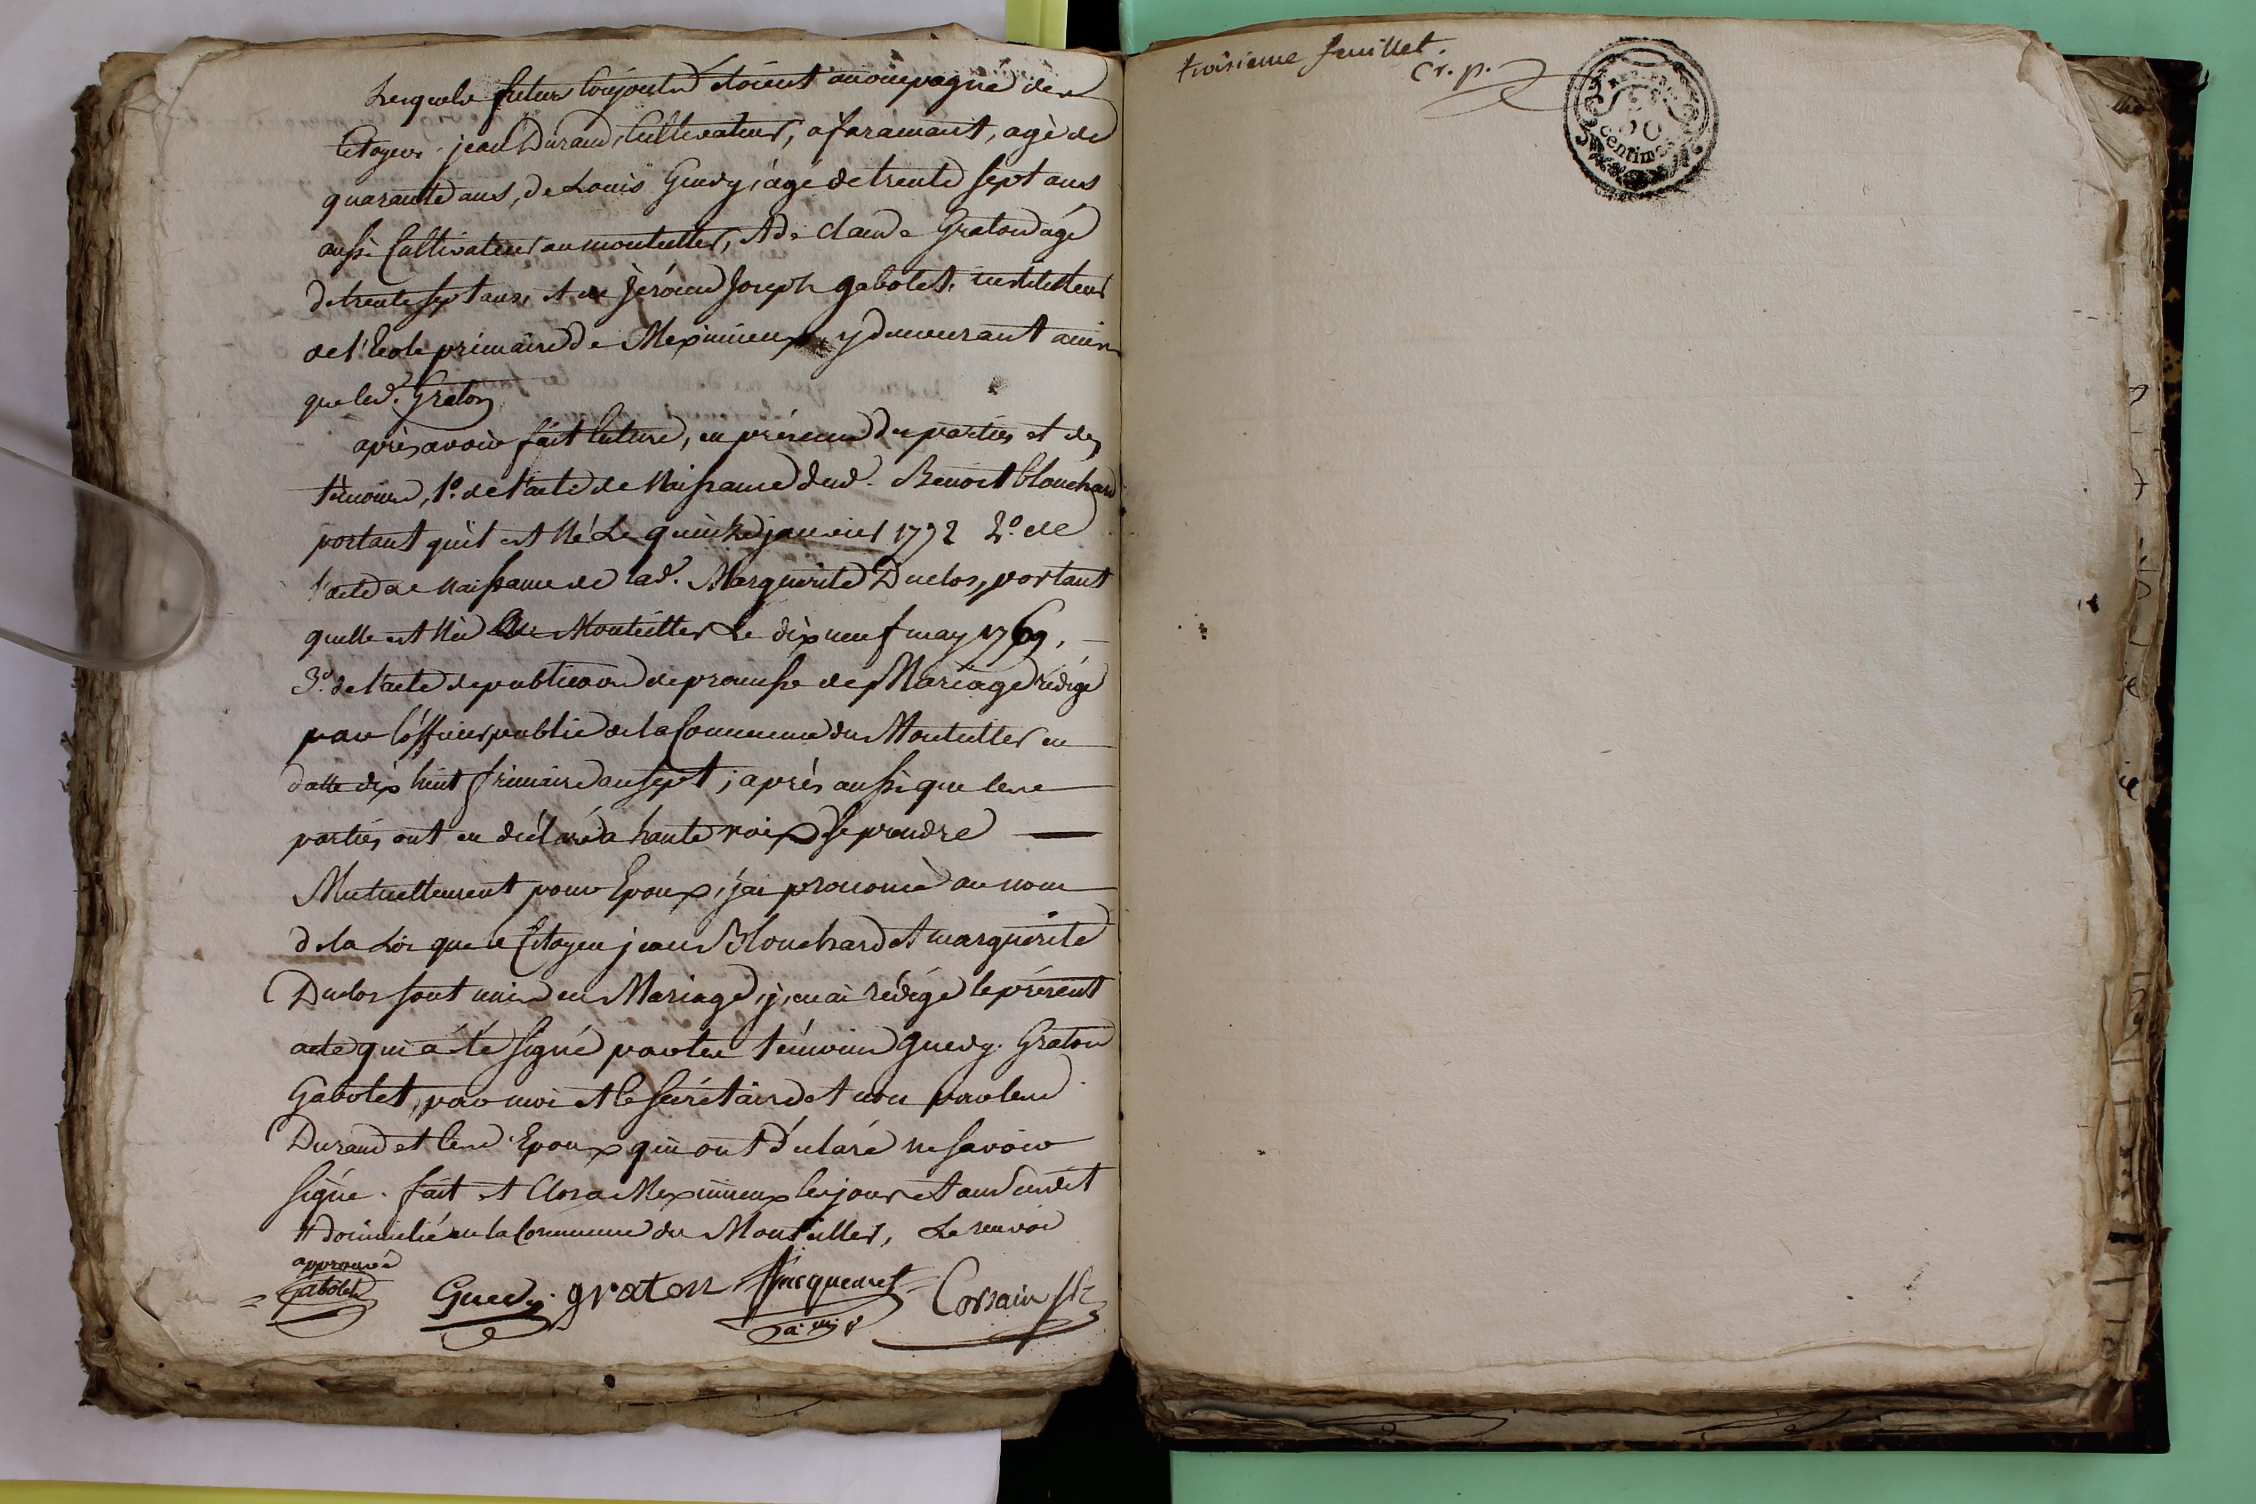 Lesquels futurs conjoints étoient accompagné des
Citoyens jean Durand, Cultivateur, a faramant, agé de
quarante ans, de Louis Guedy, agé de trente sept ans
aussi Cultivateur au montellier, & de claude Graton agé
de trente sept ans, et de jérôme Joseph gabolet, instituteur
de l'École primaire de Meximieux, y demeurant ainsi
que led. Graton
après avoir fait lecture, en présence des parties et des
témoins, 1º. de l'acte de Naissance dud. Benoit Blouchard
portant qu'il est Né Le quinze janvier 1772 2º. de
l'acte de Naissance de lad. Marguerite Duclos, portant
quelle est Née au Montellier Le dix neuf may 1769,
3º. de l'acte de publication de promesse de Mariage rédigé
par l'officier public de la Commune du Montellier en
datte dix huit frimaire an sept ; après aussi que les
parties ont eu déclaré a haute voix se prendre
Mutuellement pour Epoux, j'ai prononcé au nom
de la Loi que le Citoyen jean Blouchard et marguerite
Duclos sont unis en Mariage, j'en ai rédigé le présent
acte qui a été signé par les témoins guedy. Graton
Gabolet, par moi et le Secrétaire et non par led.
Durand et les Epoux qui ont déclaré ne savoir
signé. fait et Clos a Meximieux les jour et an susdit
# domicilié en la Commune du Montellier, Le renvoi
approuvé
Gabolet Guedy. graton Jacquemet Corsain Sre
a. m.
troisieme feuillet.
cr. p.
50
centimes